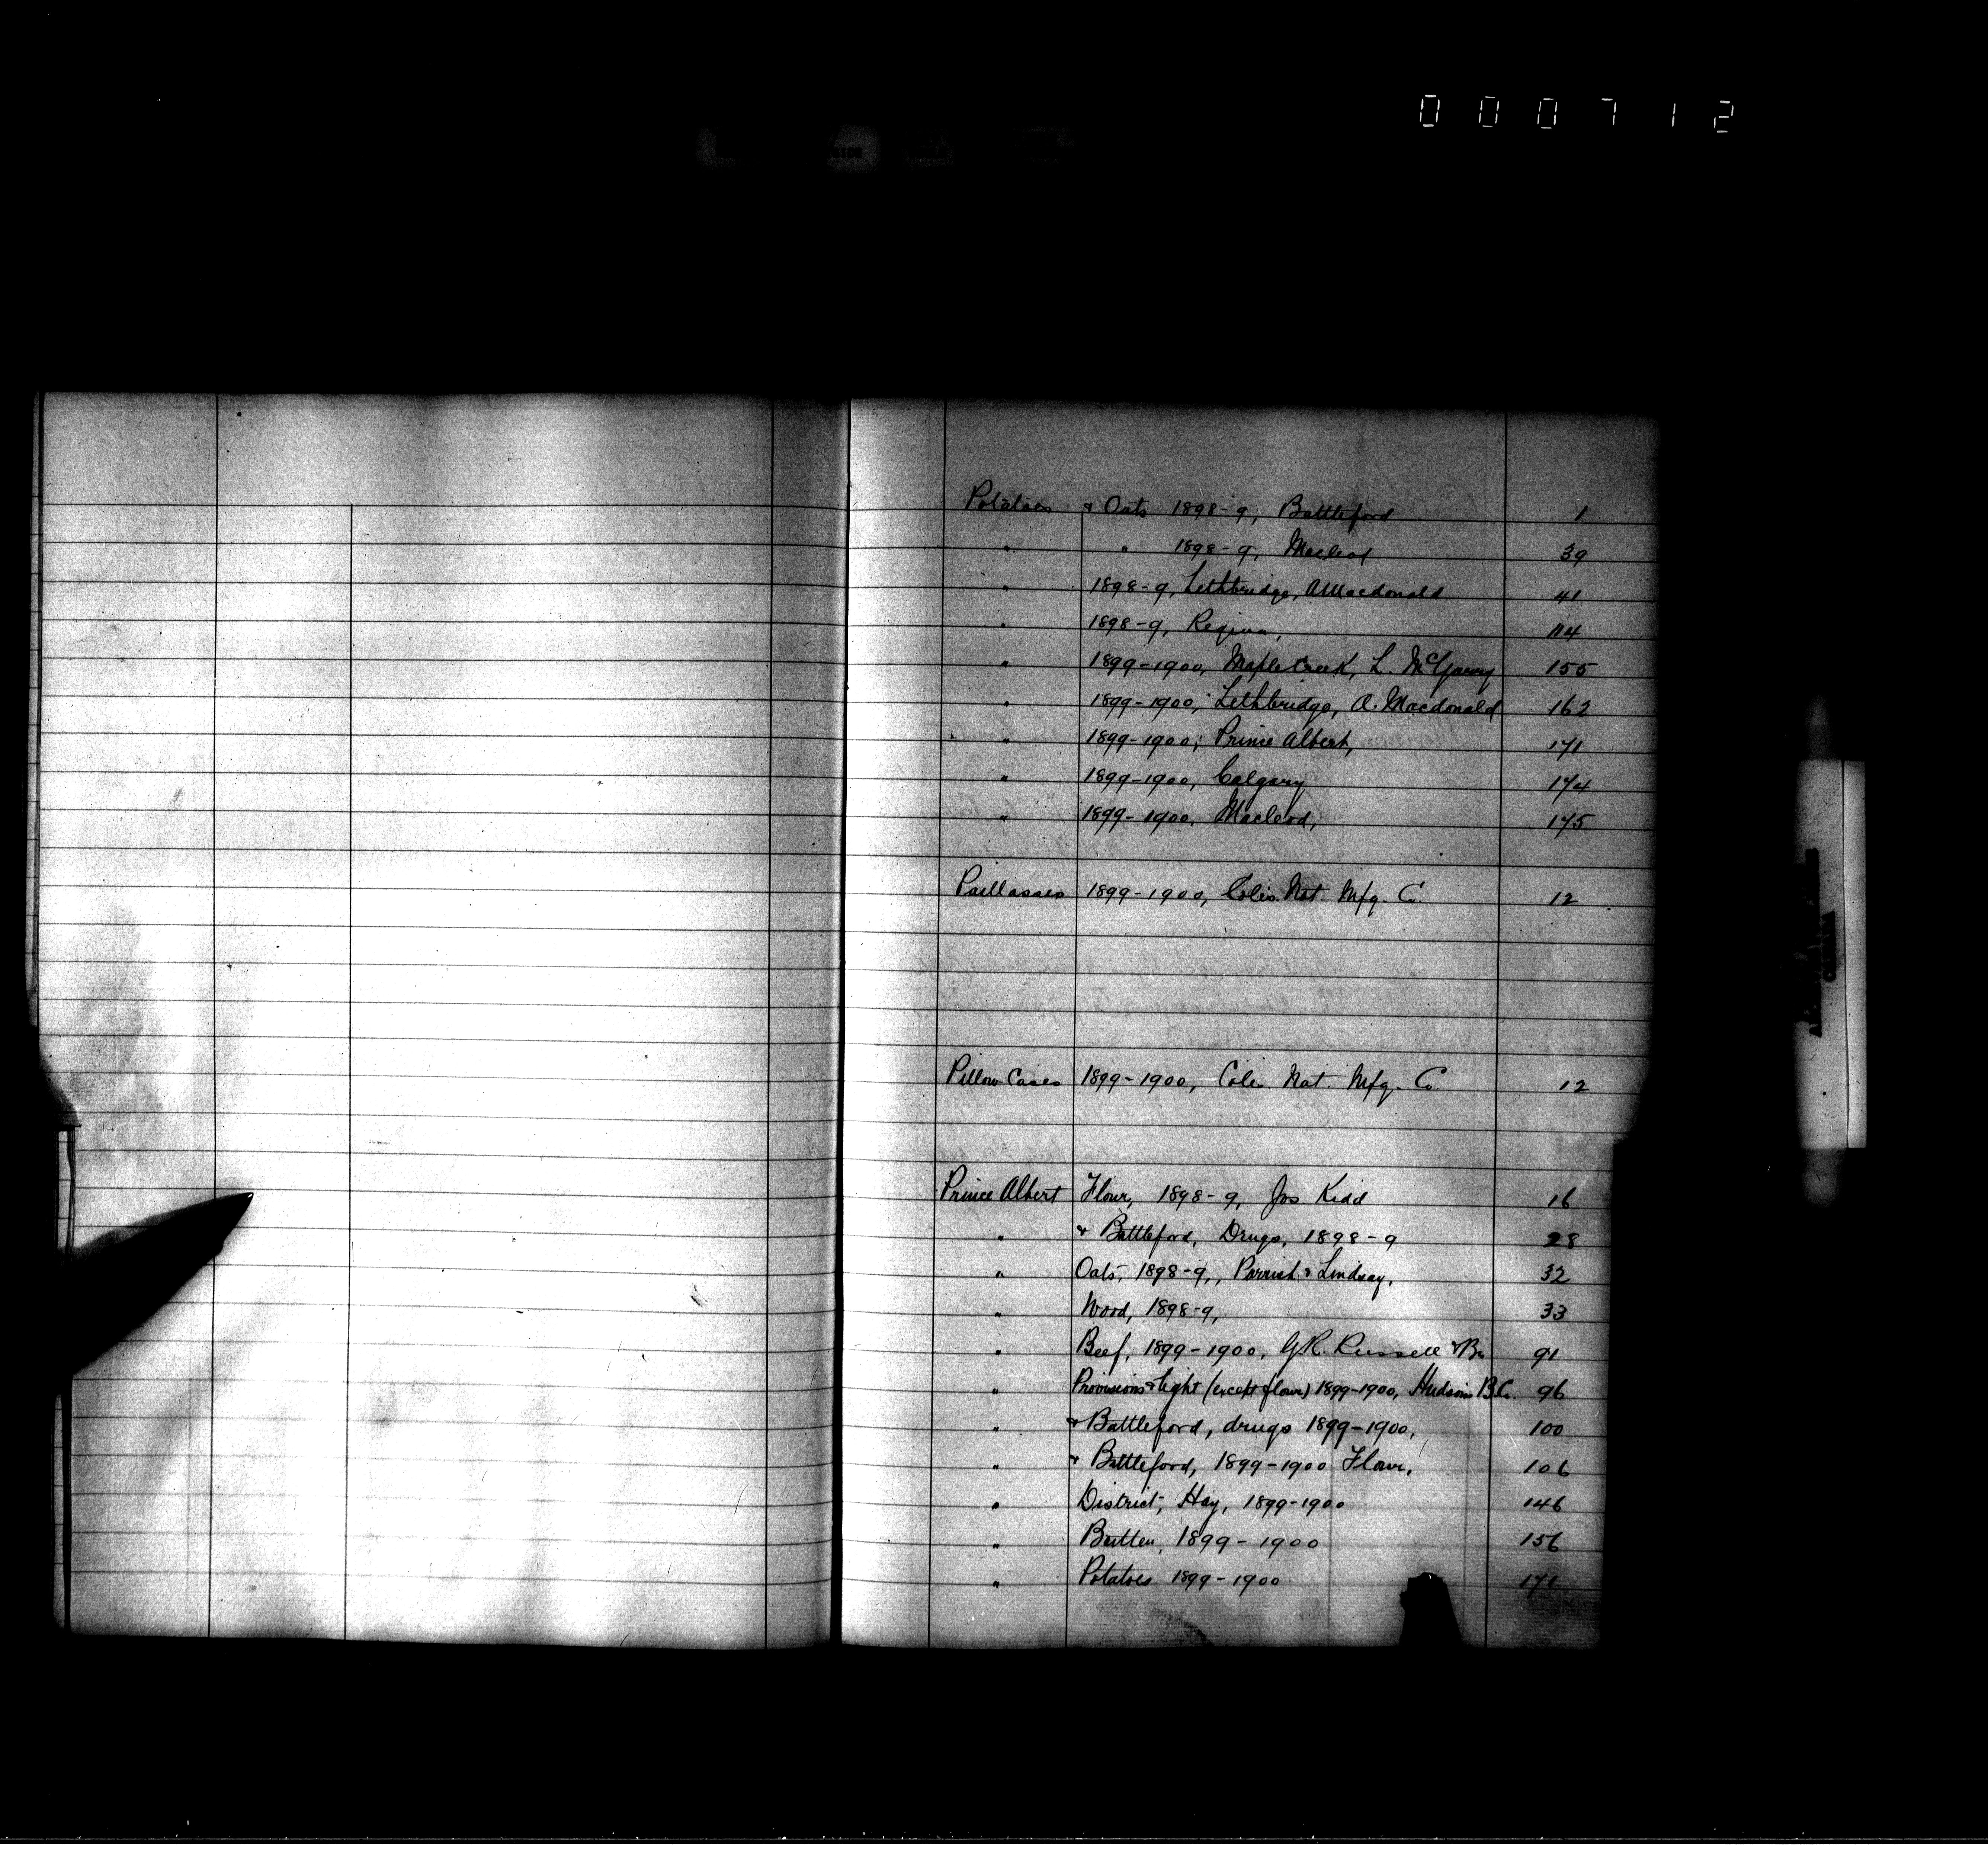 000712
Potatoes & Oats 1898-9, Battleford 1
" " 1898-9, Macleod 39
" 1898-9, Lethbridge, A Macdonald 41
" 1898-9, Regina, 114
" 1899-1900, Maple Creek, L. 155
" 1899-1900, Lethbridge, A. Macdonald 162
" 1899-1900, Prince Albert, 171
" 1899-1900, Calgary 174
" 1899-1900, Macleod, 175
Paillasses 1899-1900, Nat. Mfg. Co 12
Pillow Cases 1899-1900, Nat. Mfg. Co 12
Prince Albert Flour, 1898-9, Jos Kidd 16
" & Battleford, Drugs, 1898-9 28
" Oats, 1898-9, Parrish & Lindsay, 32
" Wood, 1898-9, 33
" Beef, 1899-1900, G.R. Russell & 91
" Provisions & Light (except flour) 1899-1900, Hudsons B.Co. 96
" & Battleford, drugs 1899-1900, 100
" & Battleford, 1899-1900 Flour, 106
" District, Hay, 1899-1900 146
" Butter, 1899-1900 156
" Potatoes 1899-1900 171